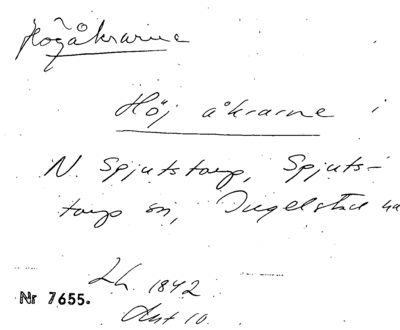 Högåkrarne
Höj åkrarne i
N. Spjutstorp, Spjuts-
torp sn, Ingelstad ha
Lh. 1842
Nr 7655.
Akt 10.